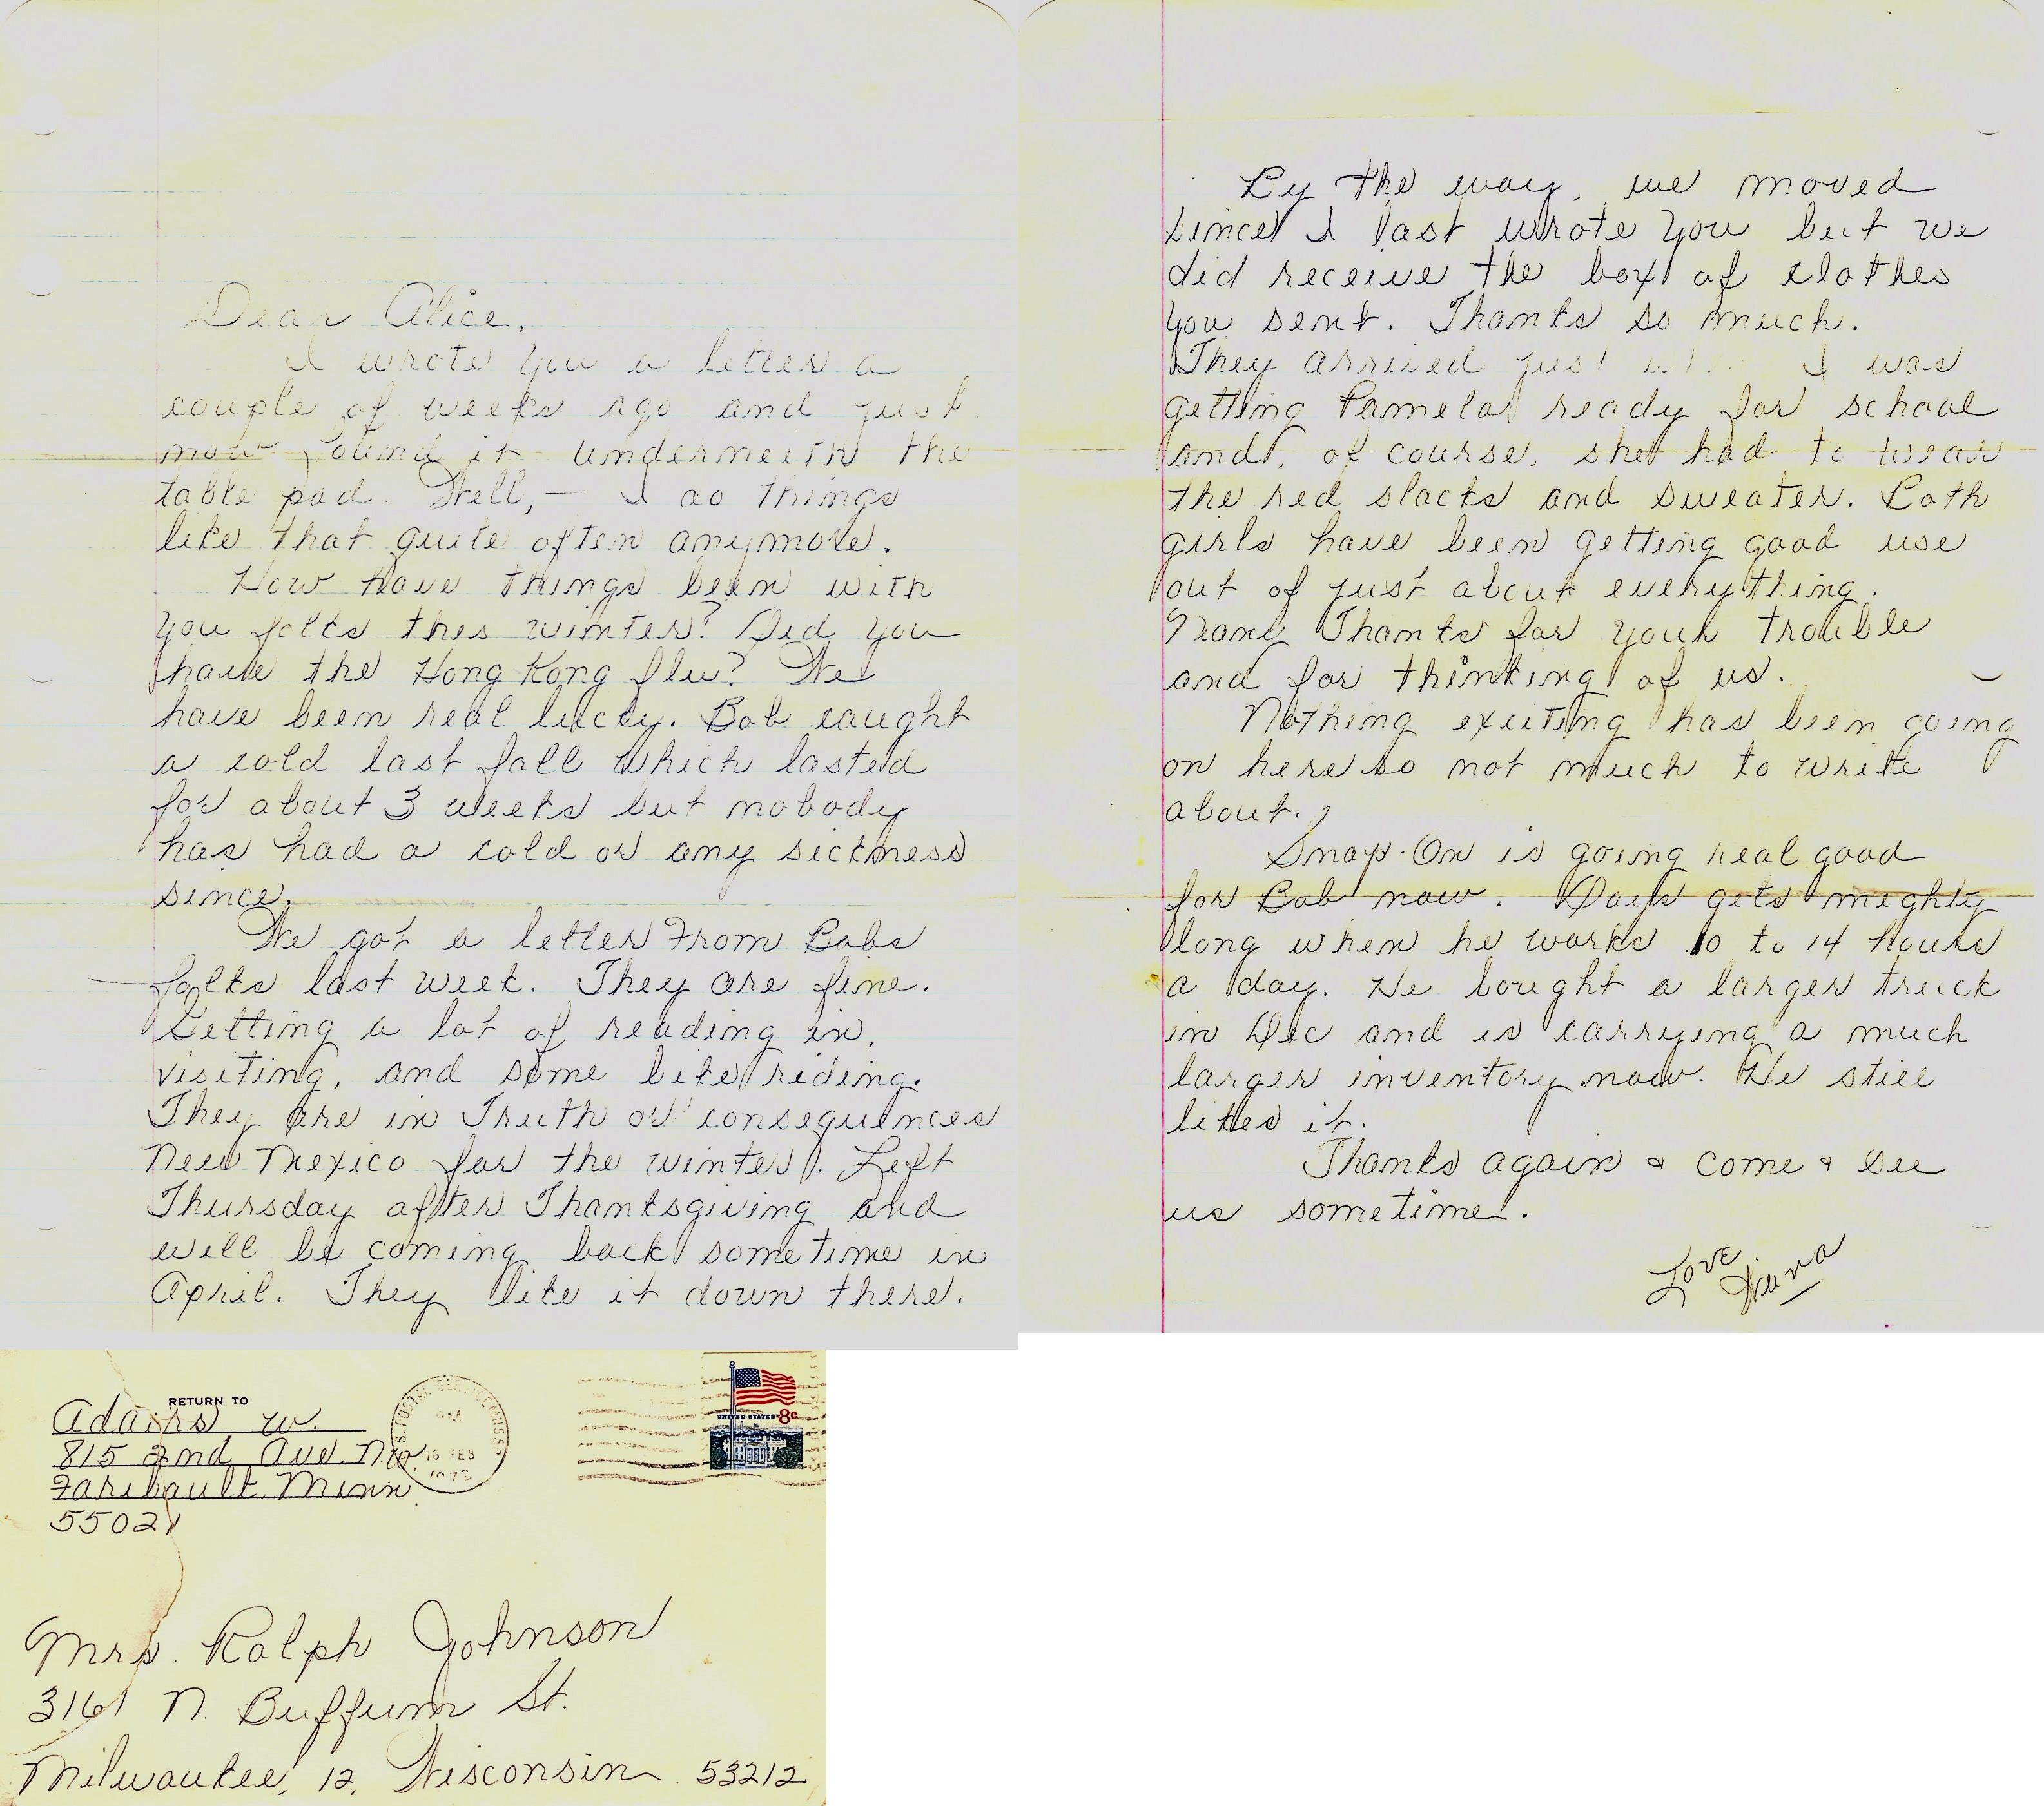 Dear Alice,
I wrote you a letter a
couple of weeks ago and just
now found it underneith the
table pad. Well, — I do things
like that quite often anymore.
How have things been with
you folks this winter? Did you
have the Hong Kong flu? We
have been real lucky. Bob caught
a cold last fall which lasted
for about 3 weeks but nobody
has had a cold or any sickness
since.
We got a letter from Bobs
folks last week. They are fine.
Getting a lot of reading in,
visiting, and some bike riding.
They are in Truth or consequences
New Mexico for the winter. Left
Thursday after Thanksgiving and
will be coming back sometime in
April. They like it down there.
By the way, we moved
since I last wrote you but we
did receive the box of clothes
you sent. Thanks so much.
They arrived just I was
getting Pamela ready for school
and, of course, she had to wear
the red slacks and sweater. Both
girls have been getting good use
out of just about everything.
Many Thanks for your trouble
and for thinking of us.
Nothing exciting has been going
on here so not much to write
about.
Snap-On is going real good
for Bob now. Days gets mighty
long when he works 10 to 14 hours
a day. He bought a larger truck
in Dec and is carrying a much
larger inventory now. He still
likes it.
Thanks again & come & see
us sometime.
Love
RETURN TO
Adams W.
815 2nd Ave. NW.
Faribault Minn
55021
U.S. POSTAL SERVICE
FEB
1972
UNITED STATES 8c
Mrs. Ralph Johnson
3161 N. Buffum St.
Milwaukee, 12, Wisconsin 53212